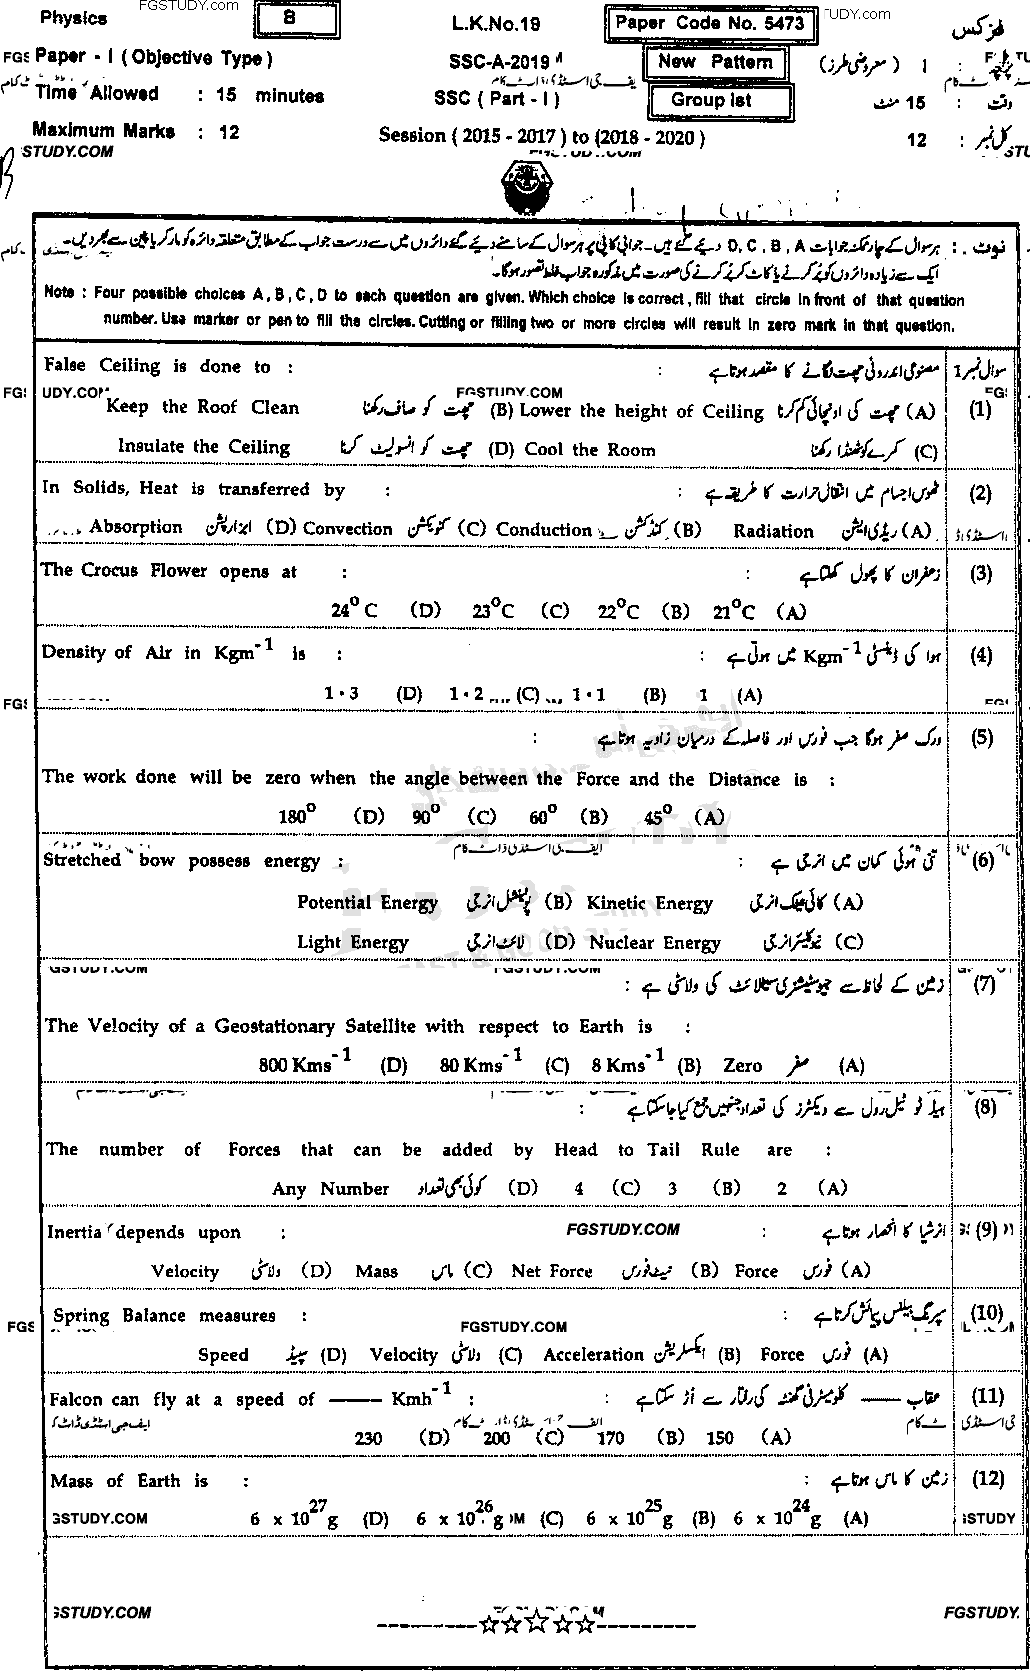 FGSTUDY.COM
Physics 8 L.K.No.18 Paper Code No. 5473 TUDY.COM فزکس
FGS Paper - I (Objective Type) SSC-A-2019 New Pattern I (معروضی طرز) پرچہ TU
Time Allowed : 15 minutes SSC (Part - I) Group Ist وقت : 15 منٹ
Maximum Marks : 12 Session (2015 - 2017) to (2018 - 2020) کل نمبر : 12
STUDY.COM STU
نوٹ : ہر سوال کے چار ممکنہ جوابات D, C, B, A دیے گئے ہیں۔ جوابی کاپی پر ہر سوال کے سامنے دیے گئے دائروں میں سے درست جواب کے مطابق متعلقہ دائرہ کو مارکر یا پین سے بھر دیں۔
ایک سے زیادہ دائروں کو پُر کرنے یا کاٹ کر پُر کرنے کی صورت میں مذکورہ جواب غلط تصور ہوگا۔
Note : Four possible choices A, B, C, D to each question are given. Which choice is correct, fill that circle in front of that question
number. Use marker or pen to fill the circles. Cutting or filling two or more circles will result in zero mark in that question.
False Ceiling is done to : مصنوعی اندرونی چھت لگانے کا مقصد ہوتا ہے : سوال نمبر 1
FGS UDY.COM FGSTUDY.COM FGS
Keep the Roof Clean چھت کو صاف رکھنا (B) Lower the height of Ceiling چھت کی اونچائی کم کرنا (A) (1)
Insulate the Ceiling چھت کو انسولیٹ کرنا (D) Cool the Room کمرے کو ٹھنڈا رکھنا (C)
In Solids, Heat is transferred by : ٹھوس اجسام میں انتقال حرارت کا طریقہ ہے : (2)
Absorption ابزارپشن (D) Convection کنویکشن (C) Conduction کنڈکشن (B) Radiation ریڈی ایشن (A)
The Crocus Flower opens at : زعفران کا پھول کھلتا ہے : (3)
24⁰C (D) 23⁰C (C) 22⁰C (B) 21⁰C (A)
Density of Air in Kgm⁻¹ is : ہوا کی ڈینسٹی Kgm⁻¹ میں ہوتی ہے : (4)
FGS 1·3 (D) 1·2 (C) 1·1 (B) 1 (A)
ورک صفر ہوگا جب فورس اور فاصلہ کے درمیان زاویہ ہوتا ہے : (5)
The work done will be zero when the angle between the Force and the Distance is :
180⁰ (D) 90⁰ (C) 60⁰ (B) 45⁰ (A)
ایف جی اسٹڈی ڈاٹ کام
Stretched bow possess energy : تنی ہوئی کمان میں انرجی ہے : (6)
Potential Energy پوٹینشل انرجی (B) Kinetic Energy کائی نیٹک انرجی (A)
Light Energy لائٹ انرجی (D) Nuclear Energy نیوکلیئر انرجی (C)
FGSTUDY.COM FGSTUDY.COM
زمین کے لحاظ سے جیوسٹیشنری سیٹلائٹ کی ولاسٹی ہے : (7)
The Velocity of a Geostationary Satellite with respect to Earth is :
800 Kms⁻¹ (D) 80 Kms⁻¹ (C) 8 Kms⁻¹ (B) Zero صفر (A)
ہیڈ ٹو ٹیل رول سے ویکٹرز کی تعداد جنہیں جمع کیا جاسکتا ہے : (8)
The number of Forces that can be added by Head to Tail Rule are :
Any Number کوئی بھی تعداد (D) 4 (C) 3 (B) 2 (A)
Inertia depends upon : FGSTUDY.COM انرشیا کا انحصار ہوتا ہے : (9)
Velocity ولاسٹی (D) Mass ماس (C) Net Force نیٹ فورس (B) Force فورس (A)
Spring Balance measures : سپرنگ بیلنس پیمائش کرتا ہے : (10)
FGS FGSTUDY.COM
Speed سپیڈ (D) Velocity ولاسٹی (C) Acceleration ایکسلریشن (B) Force فورس (A)
Falcon can fly at a speed of —— Kmh⁻¹ : عقاب —— کلومیٹر فی گھنٹہ کی رفتار سے اڑ سکتا ہے : (11)
230 (D) 200 (C) 170 (B) 150 (A)
Mass of Earth is : زمین کا ماس ہوتا ہے : (12)
GSTUDY.COM 6 x 10²⁷g (D) 6 x 10²⁶g OM (C) 6 x 10²⁵g (B) 6 x 10²⁴g (A) GSTUDY
GSTUDY.COM FGSTUDY.
----------☆☆☆☆☆----------